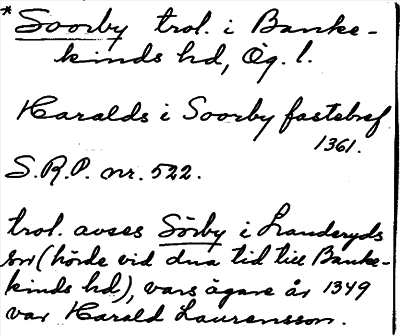 * Soorby trol. i Banke-
kinds hd, Ög. l.
Haralds i Soorby fastebref
1361.
S.R.P. nr. 522.
trol. avses Sörby i Landeryds
sn (hörde vid dna tid till Banke-
kinds hd), vars ägare år 1349
var Harald Laurensson.